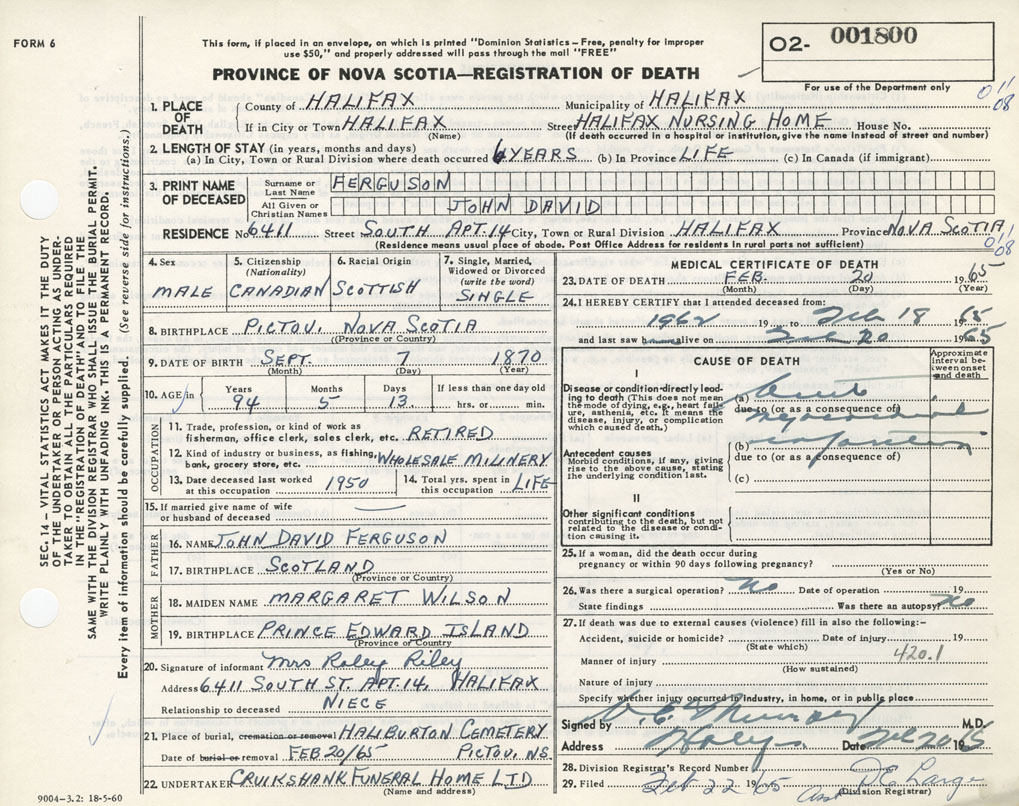 FORM 6
This form, if placed in an envelope, on which is printed "Dominion Statistics – Free, penalty for improper
use $50," and properly addressed will pass through the mail "FREE"
O2- 001800
PROVINCE OF NOVA SCOTIA—REGISTRATION OF DEATH
For use of the Department only
011
08
1. PLACE OF DEATH County of HALIFAX Municipality of HALIFAX
If in City or Town HALIFAX Street HALIFAX NURSING HOME House No.
(Name) (If death occurred in a hospital or institution, give the name instead of street and number)
2. LENGTH OF STAY (in years, months and days)
(a) In City, Town or Rural Division where death occurred 4 YEARS (b) In Province LIFE (c) In Canada (if immigrant)
3. PRINT NAME OF DECEASED
Surname or Last Name FERGUSON
All Given or Christian Names JOHN DAVID
RESIDENCE No. 6411 Street SOUTH APT. 14 City, Town or Rural Division HALIFAX Province NOVA SCOTIA
(Residence means usual place of abode. Post Office Address for residents in rural parts not sufficient)
011
08
4. Sex MALE
5. Citizenship (Nationality) CANADIAN
6. Racial Origin SCOTTISH
7. Single, Married, Widowed or Divorced (write the word) SINGLE
8. BIRTHPLACE PICTOU, NOVA SCOTIA
((Province or Country)
9. DATE OF BIRTH SEPT. 7 1870
(Month) (Day) (Year)
10. AGE in Years 94 Months 5 Days 13. If less than one day old hrs. or min.
OCCUPATION
11. Trade, profession, or kind of work as fisherman, office clerk, sales clerk, etc. RETIRED
12. Kind of industry or business, as fishing, bank, grocery store, etc. WHOLESALE MILINERY
13. Date deceased last worked at this occupation 1950
14. Total yrs. spent in this occupation LIFE
15. If married give name of wife or husband of deceased —
FATHER
16. NAME JOHN DAVID FERGUSON
17. BIRTHPLACE SCOTLAND
(Province or Country)
MOTHER
18. MAIDEN NAME MARGARET WILSON
19. BIRTHPLACE PRINCE EDWARD ISLAND
(Province or Country)
20. Signature of informant Mrs Roley Riley
Address 6411 SOUTH ST. APT. 14, HALIFAX
Relationship to deceased NIECE
21. Place of burial, cremation or removal HALIBURTON CEMETERY
Date of burial or removal FEB 20/65 PICTOU, NS.
22. UNDERTAKER CRUIKSHANK FUNERAL HOME LTD
(Name and address)
MEDICAL CERTIFICATE OF DEATH
23. DATE OF DEATH FEB. 20 1965
(Month) (Day) (Year)
24. I HEREBY CERTIFY that I attended deceased from:
1962 19 to Feb 18 1965
and last saw h alive on Feb 20 1965
CAUSE OF DEATH
Approximate interval between onset and death
I
Disease or condition directly leading to death (This does not mean the mode of dying, e.g., heart failure, asthenia, etc. It means the disease, injury, or complication which caused death.)
(a) Acute
due to (or as a consequence of) myocardial
(b) infarction
due to (or as a consequence of)
(c)
Antecedent causes
Morbid conditions, if any, giving rise to the above cause, stating the underlying condition last.
II
Other significant conditions
contributing to the death, but not related to the disease or condition causing it.
25. If a woman, did the death occur during
pregnancy or within 90 days following pregnancy?
(Yes or No)
26. Was there a surgical operation? no Date of operation 19
State findings Was there an autopsy? no
27. If death was due to external causes (violence) fill in also the following:-
Accident, suicide or homicide? Date of injury 19
(State which)
420.1
Manner of injury
(How sustained)
Nature of injury
Specify whether injury occurred in industry, in home, or in public place
Signed by Murray M.D.
Address Halifax Date Feb 20 1965
28. Division Registrar's Record Number
29. Filed Feb 22 1965 Asst D.E. Large
(Division Registrar)
SEC. 14 – VITAL STATISTICS ACT MAKES IT THE DUTY
OF THE UNDERTAKER OR PERSON ACTING AS UNDER-
TAKER TO OBTAIN ALL THE PARTICULARS REQUIRED
IN THE "REGISTRATION OF DEATH" AND TO FILE THE
SAME WITH THE DIVISION REGISTRAR WHO SHALL ISSUE THE BURIAL PERMIT.
WRITE PLAINLY WITH UNFADING INK. THIS IS A PERMANENT RECORD.
Every item of information should be carefully supplied. (See reverse side for instructions.)
9004-3.2: 18-5-60